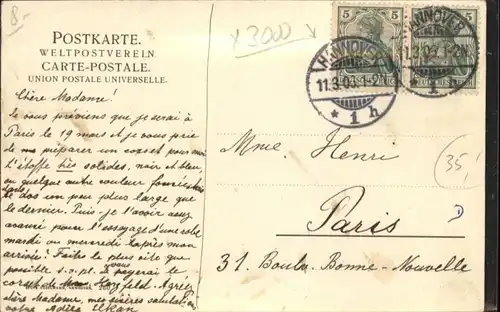 8.-
x 3000 x
POSTKARTE.
WELTPOSTVEREIN.
CARTE-POSTALE.
UNION POSTALE UNIVERSELLE.
5 5
5 5
HANNOVER
11.3.03.1-2N
* 1 h
HANNOVER
11.3.03.1-2N
1
Chère Madame!
Je vous préviens que je serai à
Paris le 19 mars et je vous prie
de me préparer un corset pour moi
l'étoffe très solides, noir et bleu,
ou quelque autre couleur foncée
le dos un peu plus large que
le dernier. Puis-je l'avoir assez
avancé pour l'essayage d'une robe
mardi ou mercredi l'après mon
arrivée? Faites le plus vite que
possible s.v.pl. Je vous payerai le
corset de Herzfeld. Agréez
chère Madame, mes sincères salutations
votre Adèle
Mme. Henri
35,
D
Paris
31. Boulv. Bonne-Nouvelle